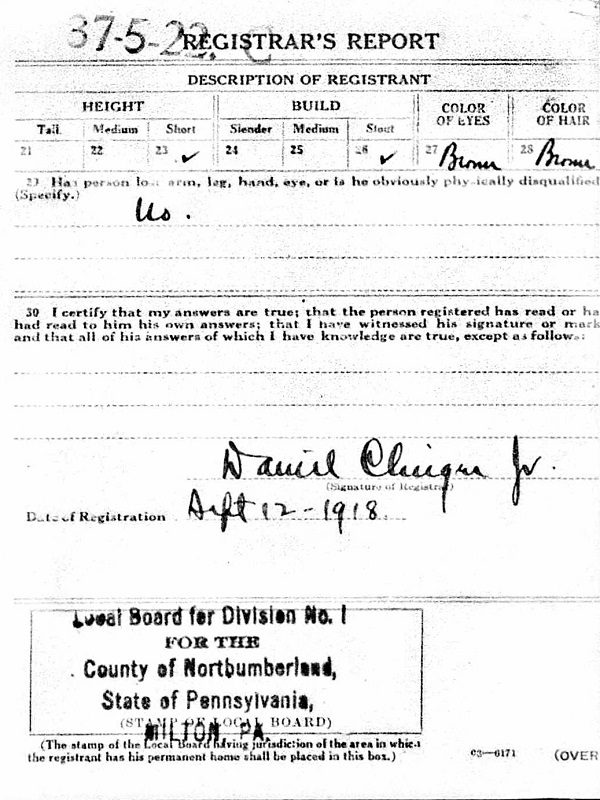 37-5-22. C
REGISTRAR'S REPORT
DESCRIPTION OF REGISTRANT
HEIGHT BUILD COLOR OF EYES COLOR OF HAIR
Tall Medium Short Slender Medium Stout
21 22 23 ✓ 24 25 26 ✓ 27 Brown 28 Brown
29 Has person lost arm, leg, hand, eye, or is he obviously physically disqualified
(Specify.)
No.
30 I certify that my answers are true; that the person registered has read or ha
had read to him his own answers; that I have witnessed his signature or mark
and that all of his answers of which I have knowledge are true, except as follows:
Daniel Clinger Jr.
(Signature of Registrar)
Date of Registration Sept 12 - 1918.
Local Board for Division No. 1
FOR THE
County of Northumberland,
State of Pennsylvania,
(STAMP OF LOCAL BOARD)
MILTON, PA.
(The stamp of the Local Board having jurisdiction of the area in which
the registrant has his permanent home shall be placed in this box.)
03—6171 (OVER